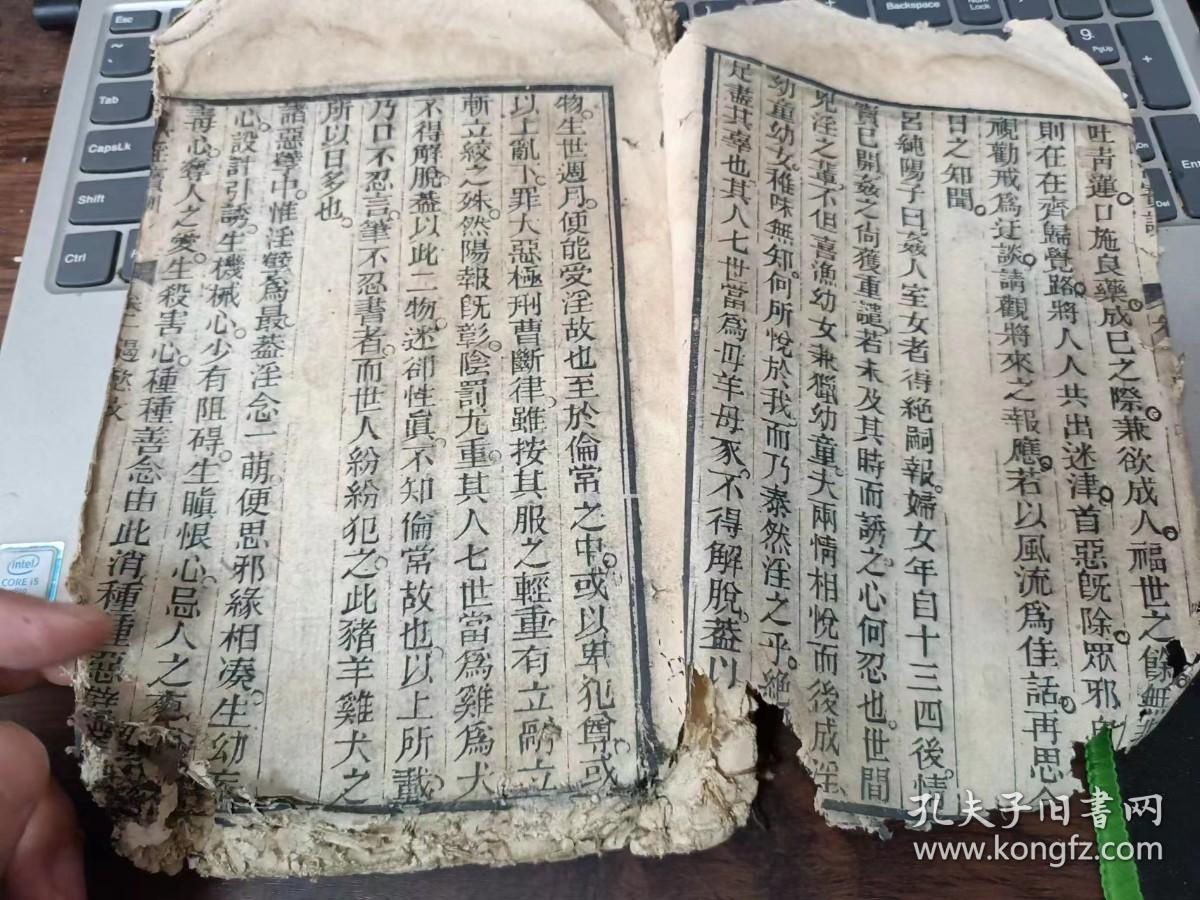 吐青蓮口施良藥成已之際兼欲成人福世之餘無
則在在齊歸覺路將人人共出迷津首惡旣除眾邪
視勸戒爲迂談請觀將來之報應若以風流爲佳話再思今
日之知聞
呂純陽子曰姦人室女者得絕嗣報婦女年自十三四後情
竇已開姦之尙獲重譴若未及其時而誘之心何忍也世間
兒淫之輩不但喜漁幼女兼獵幼童夫兩情相悅而後成淫
幼童幼女稚昧無知何所悅於我而乃泰然淫之乎絕
足盡其辜也其人七世當爲母羊母豕不得解脫蓋以
物生世週月便能愛淫故也至於倫常之中或以卑犯尊或
以上亂下罪大惡極刑曹斷律雖按其服之輕重有立斷立
斬立絞之殊然陽報旣彰陰罰尤重其人七世當爲雞爲犬
不得解脫蓋以此二物迷卻性眞不知倫常故也以上所載
乃口不忍言筆不忍書者而世人紛紛犯之此豬羊雞犬之
所以日多也
諸惡孽中惟淫孽爲最蓋淫念一萌便思邪緣相湊生幼妄
心設計引誘生機械心少有阻碍生瞋恨心忌人之
毒心奪人之愛生殺害心種種善念由此消種種惡
卷一遏慾火
Esc
Tab
CapsLk
Shift
Ctrl
Backspace
NumLk
PgUp
Del
intel
CORE i5
孔夫子旧书网
www.kongfz.com